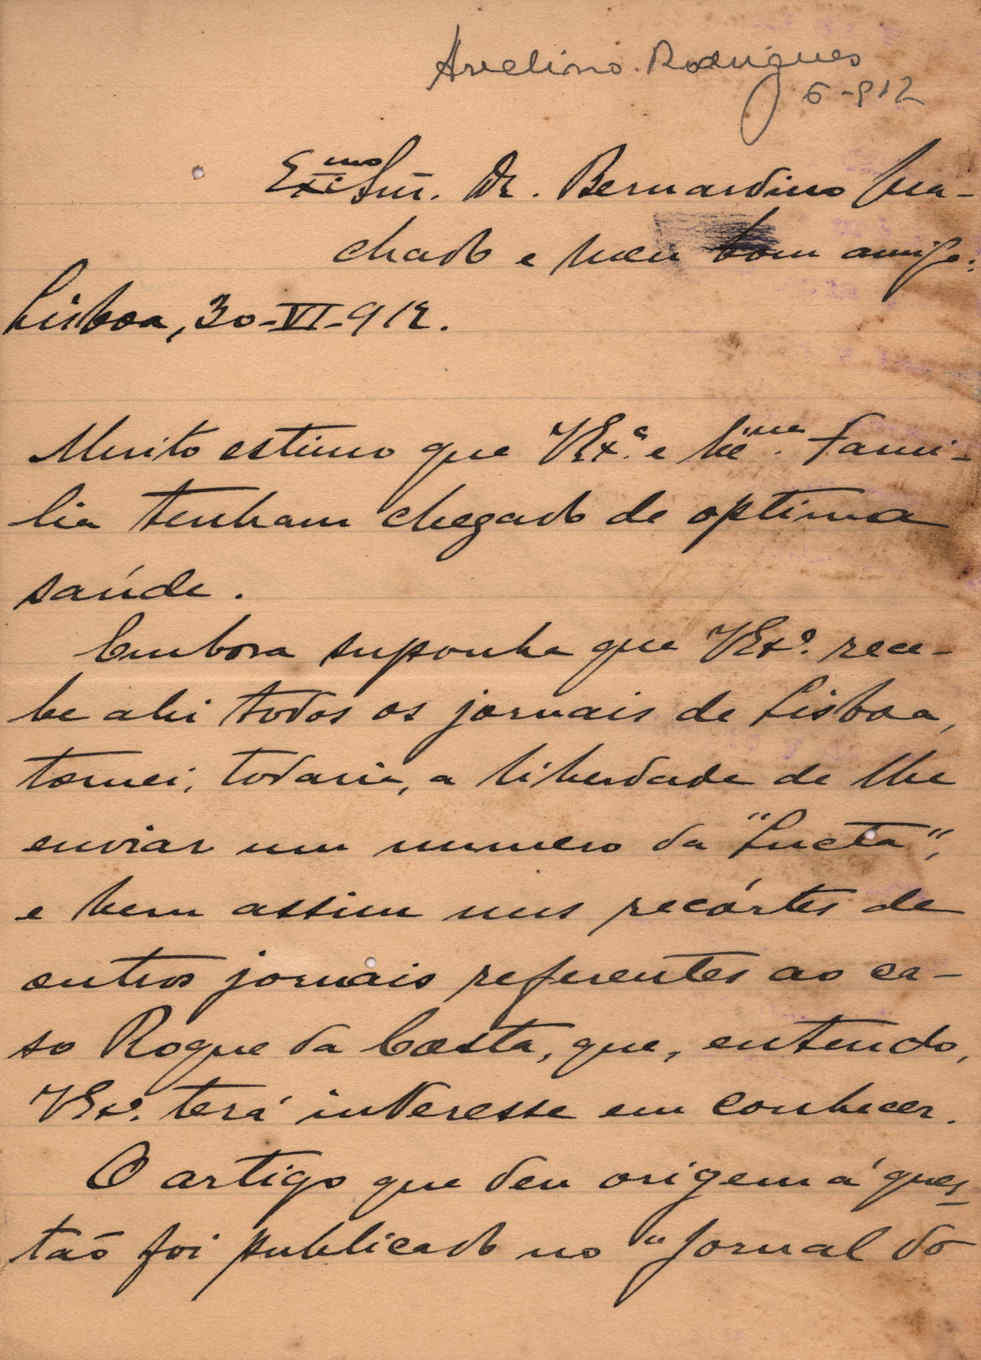 Avelino Rodrigues
6-912
Exmo Snr. Dr. Bernardino Ma-
chado e meu bom amigo:
Lisboa, 30-VI-912.
Muito estimo que VExª. e Exma. fami-
lia tenham chegado de optima
saúde.
Embora suponha que VExª. rece-
be ahi todos os jornais de Lisboa,
tomei, todavia, a liberdade de lhe
enviar um numero da "Lucta",
e bem assim uns recórtes de
outros jornais referentes ao ca-
so Roque da Costa, que, entendo,
VExª. terá interesse em conhecer.
O artigo que deu origem á ques-
tão foi publicado no "Jornal do